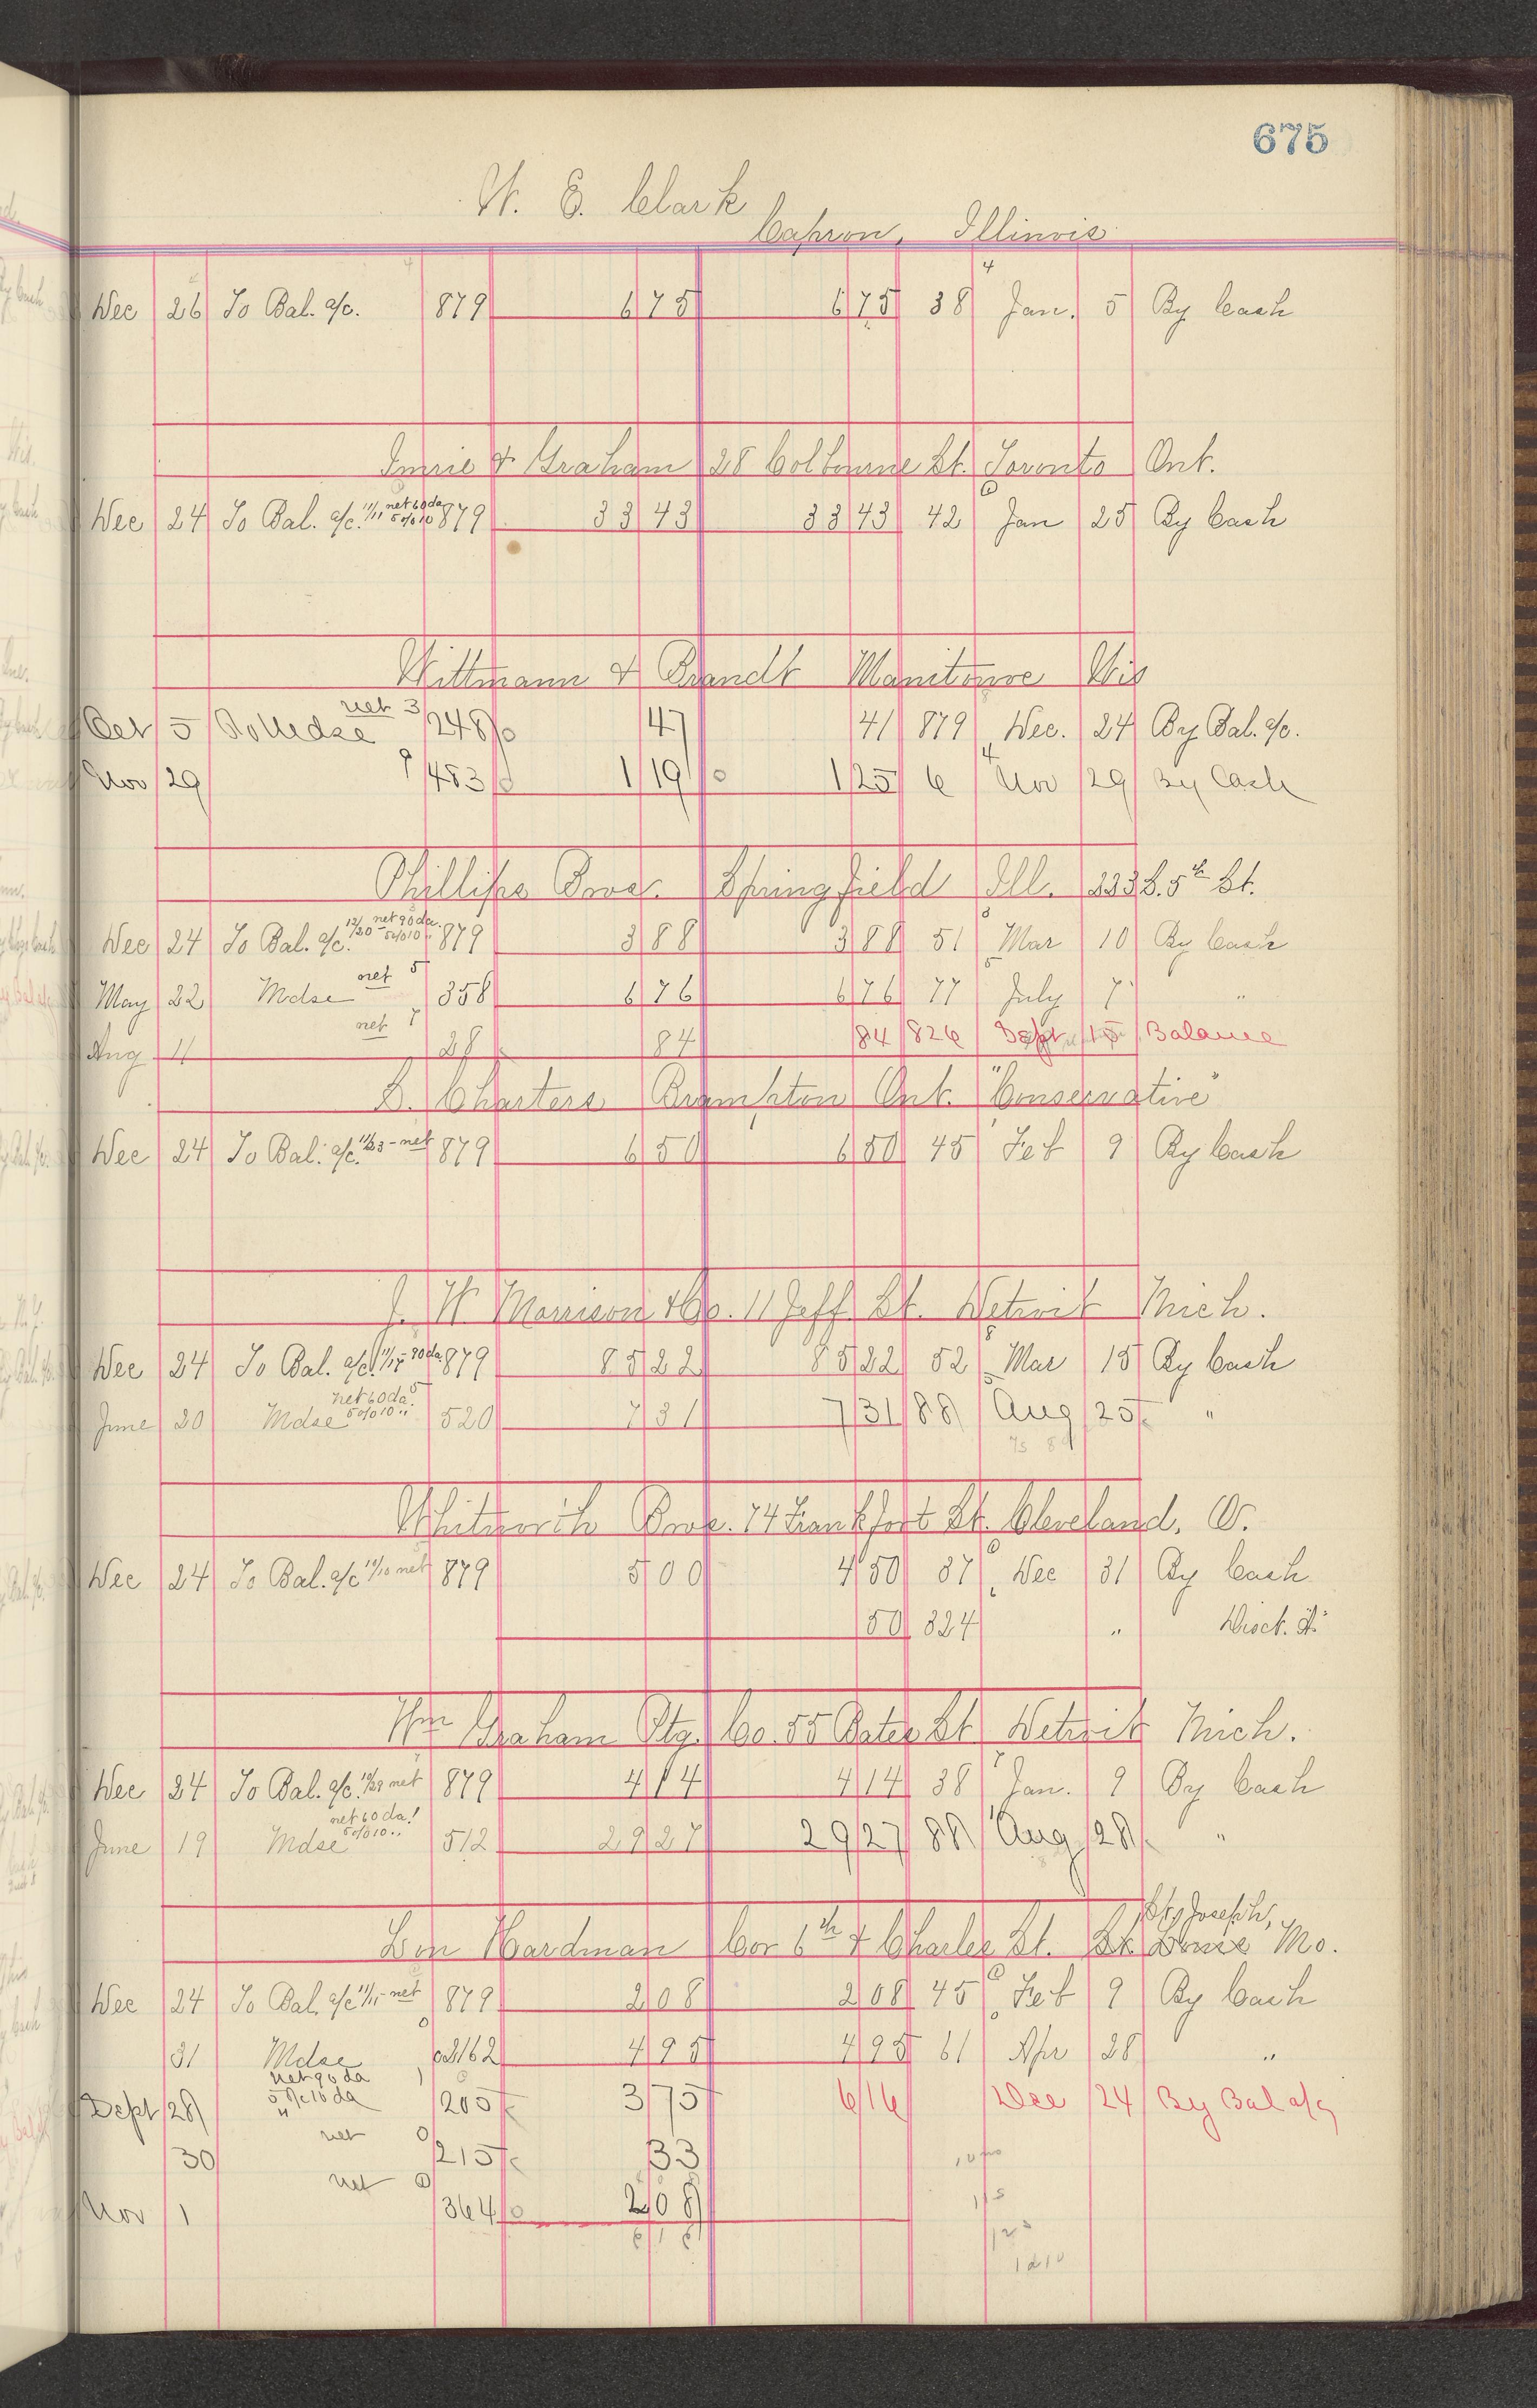 675
W. E. Clark
Capron, Illinois
Dec 26 To Bal. a/c. 879 6 75 6 75 38 4 Jan. 5 By Cash
Imrie & Graham 28 Colbourne St. Toronto Ont.
Dec 24 To Bal. a/c. 11/11 net 60 da 5% 10 879 33 43 33 43 42 Jan 25 By Cash
Wittmann & Brandt Manitowoc Wis
Oct 5 To Mdse net 3 248 47 41 879 Dec. 24 By Bal. a/c.
Nov 29 9 483 1 19 1 25 6 4 Nov 29 By Cash
Phillips Bros. Springfield Ill. 223 S. 5th St.
Dec 24 To Bal. a/c. 12/20 net 90 da. 5% 10 " 879 3 88 3 88 51 Mar 10 By Cash
May 22 Mdse net 5 358 6 76 6 76 77 July 7 "
Aug 11 net 7 28 84 84 826 Sept 15 Balance
S. Charters Brampton Ont. "Conservative"
Dec 24 To Bal. a/c. 11/23 - net 879 6 50 6 50 45 Feb 9 By Cash
J. W. Morrison & Co. 11 Jeff. St. Detroit Mich.
Dec 24 To Bal. a/c. 879 85 22 85 22 52 Mar 15 By Cash
June 20 Mdse net 60 da. 5% 10 " 520 7 31 7 31 88 Aug 25 "
Whitworth Bros. 74 Frankfort St. Cleveland, O.
Dec 24 To Bal. a/c 11/10 net 879 5 00 4 50 37 Dec 31 By Cash
50 324 " Disct. "A"
Wm Graham Ptg. Co. 55 Bates St. Detroit Mich.
Dec 24 To Bal. a/c. 10/29 net 879 4 14 4 14 38 7 Jan. 9 By Cash
June 19 Mdse net 60 da. 5% 10 " 512 29 27 29 27 88 Aug 28 "
St. Joseph,
Lon Hardman Cor 6th & Charles St. St. Louis Mo.
Dec 24 To Bal. a/c 11/11 - net 879 2 08 2 08 45 Feb 9 By Cash
31 Mdse 162 4 95 4 95 61 Apr 28 "
Sept 28 net 90 da 5% 10 da 205 3 75 6 16 Dec 24 By Bal a/c
"
30 net 215 33
Nov 1 net 364 2 08
6 1 6